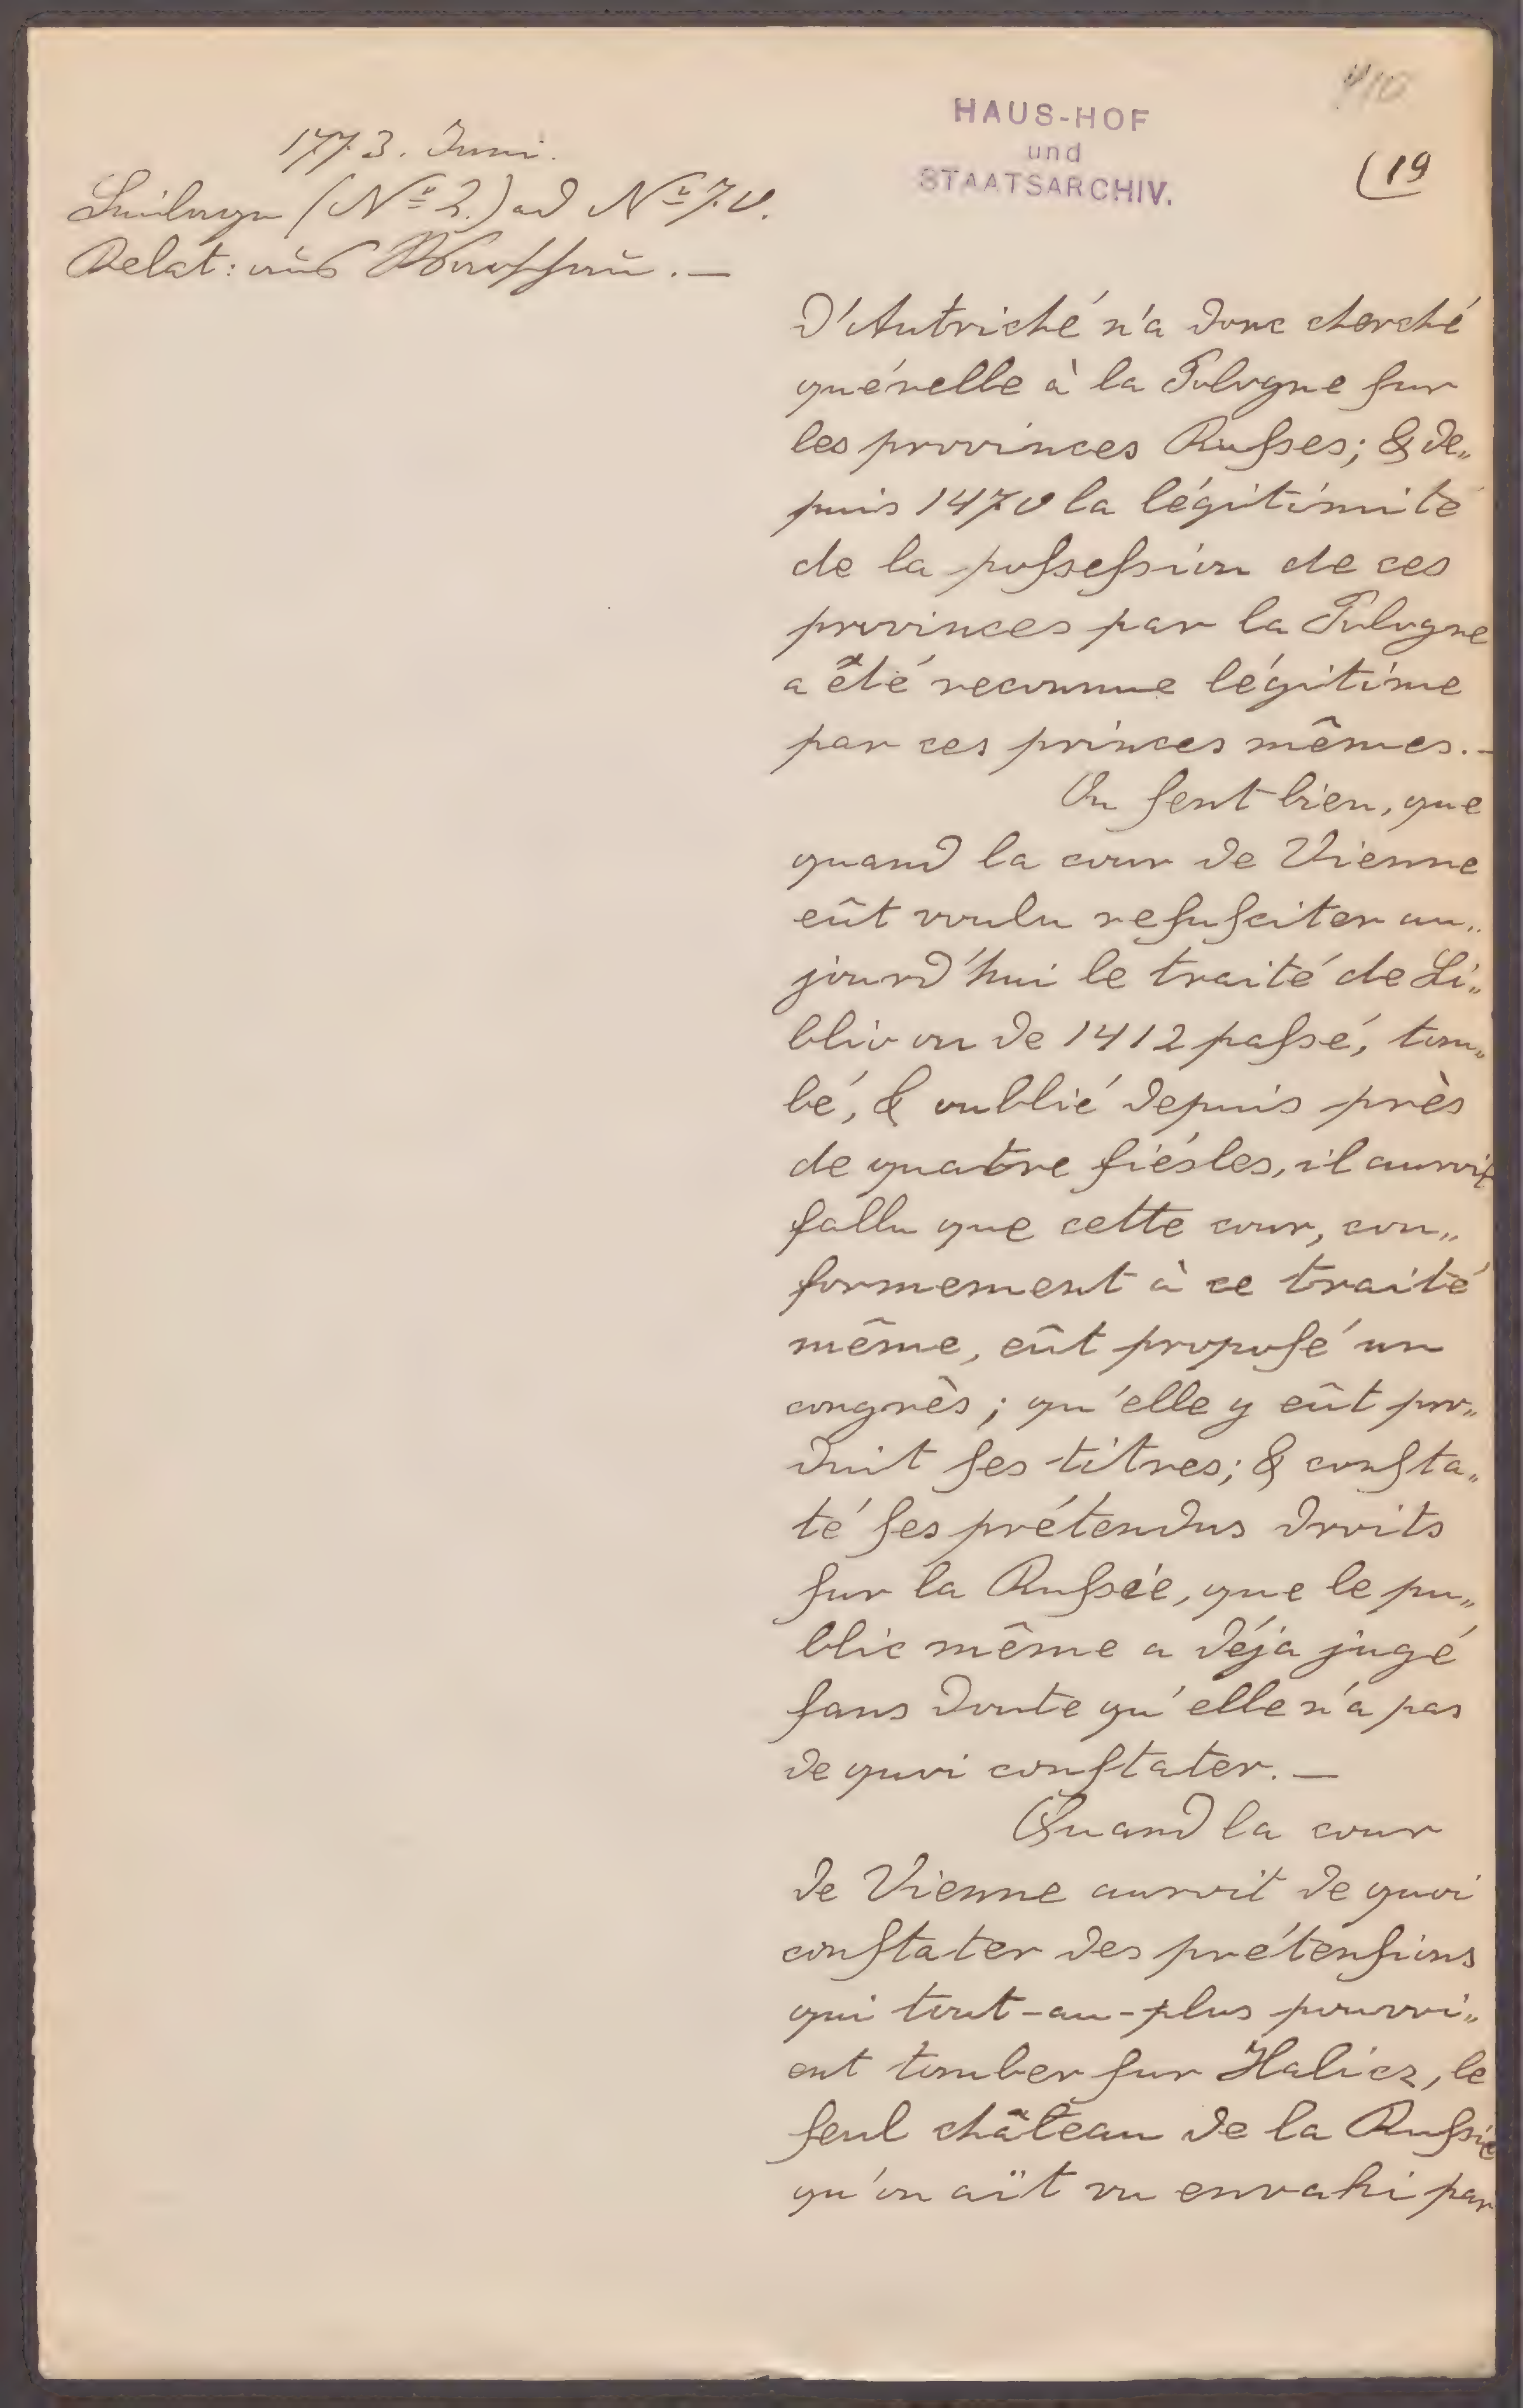 410
HAUS-HOF
und
STAATSARCHIV.
(19
1773. Juni.
Beilage (Nº 2.) ad Nº 70.
Relat: aus Warschau. —
D'Autriché n'a donc cherché
quérelle à la Pologne sur
les provinces Russes; & de„
puis 1470 la légitimité
de la possession de ces
provinces par la Pologne
a été reconnue légitime
par ces princes mêmes. —
On sent bien, que
quand la cour de Vienne
eût voulu resusciter au„
jourd'hui le traité de Li„
blio ou de 1412 passé, tom„
bé, & oublié depuis près
de quatre siésles, il auroit
fallu que cette cour, con„
formement à ce traité
même, eût proposé un
congrès; qu'elle y eût pro„
duit ses titres; & consta„
té ses prétendus droits
sur la Russie, que le pu„
blic même a déja jugé
sans doute qu'elle n'a pas
de quoi constater. —
Quand la cour
de Vienne auroit de quoi
constater des prétensions
qui tout-au-plus pourroi„
ent tomber sur Halicz, le
seul château de la Russie
qu'on aït vu envahi par